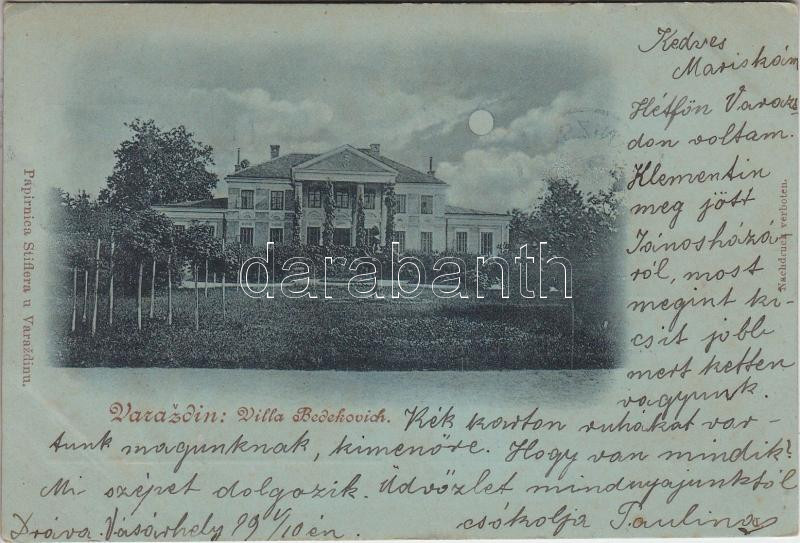 Kedves
Mariskám
Hétfőn Varaz-
don voltam.
Klementin
meg jött
Jánosházá-
ról, most
megint ki-
csit jobb
mert ketten
vagyunk.
Kék karton ruhákat var-
tunk magunknak, kimenőre. Hogy van mindik?
Mi szépet dolgozik. Üdvözlet mindnyájunktól
csókolja Paulina
Dráva Vásárhely 99 V/10 én.
Varaždin: Villa Bedekovich.
Papirnica Stiflera u Varaždinu.
Nachdruck verboten.
darabanth